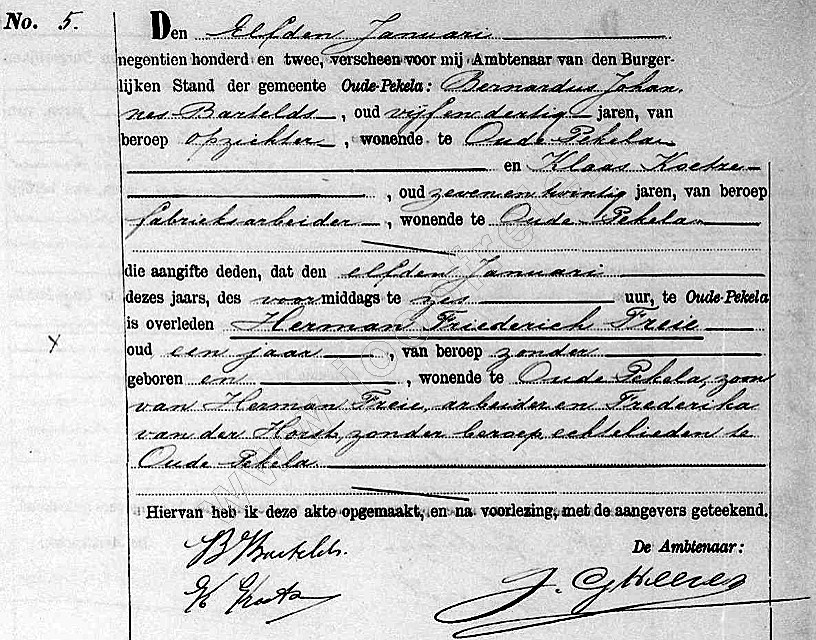 No. 5.
Den Elfden Januari
negentien honderd en twee, verscheen voor mij Ambtenaar van den Burger-
lijken Stand der gemeente Oude-Pekela: Bernardus Johan-
nes Bartelds, oud vijf en dertig jaren, van
beroep opzichter, wonende te Oude Pekela
en Klaas Koetze
, oud zeven en twintig jaren, van beroep
fabrieksarbeider, wonende te Oude-Pekela
die aangifte deden, dat den elfden Januari
dezes jaars, des voormiddags te zes uur, te Oude-Pekela
is overleden Herman Friederich Freie
oud een jaar, van beroep zonder
geboren en, wonende te Oude Pekela, zoon
van Herman Freie, arbeider en Frederika
van der Horst, zonder beroep echtelieden te
Oude Pekela
Hiervan heb ik deze akte opgemaakt, en na voorlezing, met de aangevers geteekend.
B J Bartelds.
De Ambtenaar:
K
J.